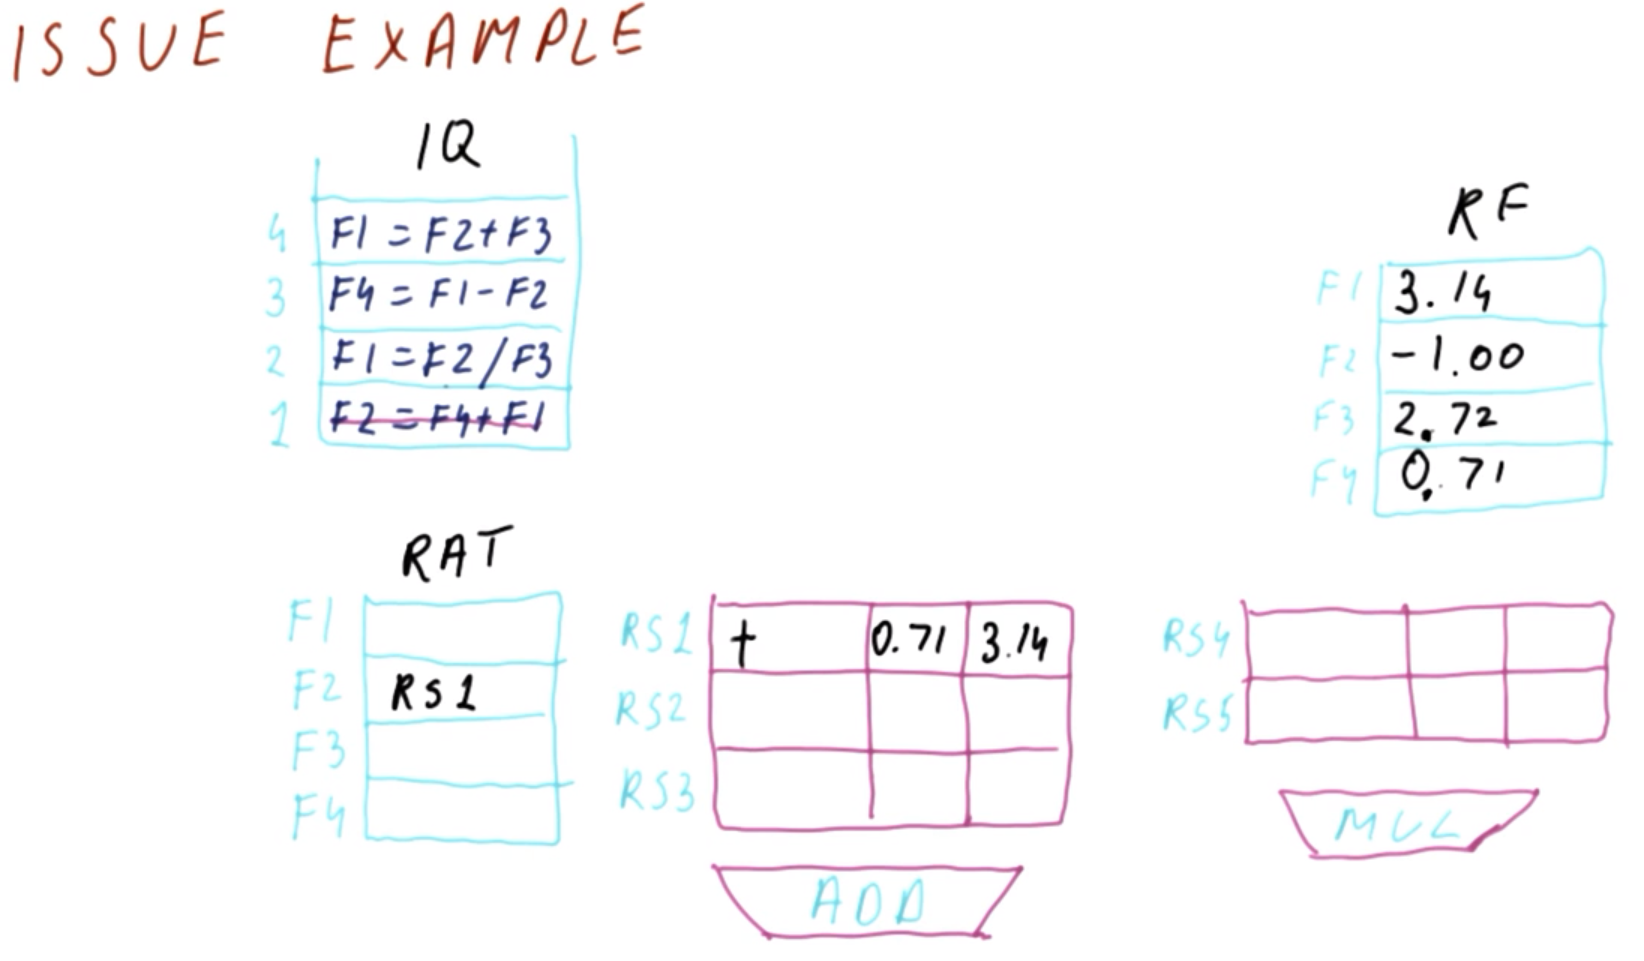 ISSUE EXAMPLE
IQ
4 F1 = F2 + F3
3 F4 = F1 - F2
2 F1 = F2 / F3
1 F2 = F4 + F1
RF
F1 3.14
F2 -1.00
F3 2.72
F4 0.71
RAT
F1
F2 RS1
F3
F4
RS1 + 0.71 3.14
RS2
RS3
ADD
RS4
RS5
MUL